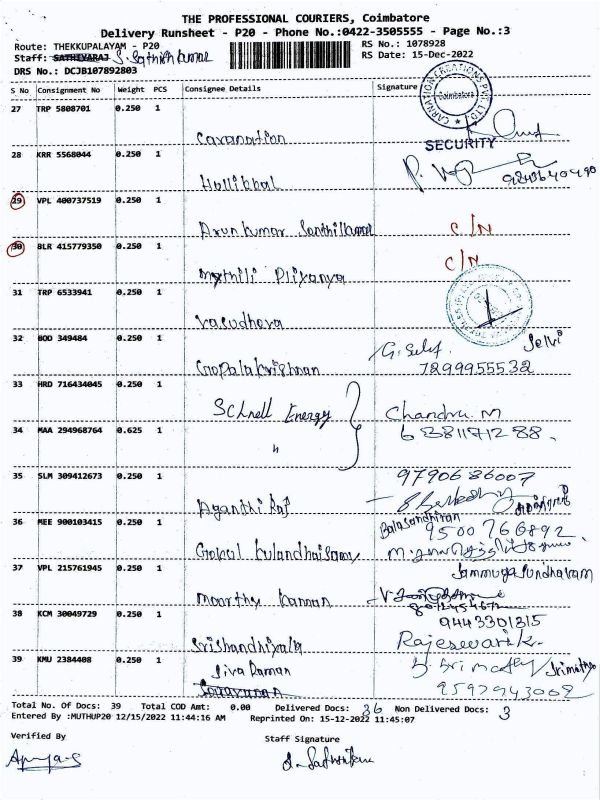 THE PROFESSIONAL COURIERS, Coimbatore
Delivery Runsheet - P20 - Phone No.:0422-3505555 - Page No.:3
Route: THEKKUPALAYAM - P20
RS No.: 1078928
Staff: SATHIYARAJ S. Sathishkumar
RS Date: 15-Dec-2022
DRS No.: DCJB107892803
S No Consignment No Weight PCS Consignee Details Signature
CARNATION CREATIONS PVT LTD
Coimbatore
27 TRP 5808701 0.250 1
Caranation
SECURITY
28 KRR 5568044 0.250 1
Hollikhal
29 VPL 400737519 0.250 1
Arunkumar Santhilkumar C/N
30 BLR 415779350 0.250 1
Mythili Pliyanya C/N
31 TRP 6533941 0.250 1
Vasudheva
32 HOD 349484 0.250 1
Gopalakrishnan G. Selvi Selvi
7299955532
33 HRD 716434045 0.250 1
Schnell Energy Chandru. M
34 MAA 294968764 0.625 1
"
35 SLM 309412673 0.250 1
9790686007
36 MEE 900103415 0.250 1
Balasandhiran
9500766892
Gokul Kulandhaisamy
37 VPL 215761945 0.250 1
Moorthy Kannan
38 KCM 30049729 0.250 1
9443301315
Rajeswari.k.
39 KMU 2384408 0.250 1
Siva Raman
B. Srimathy / Srimathy
Total No. Of Docs: 39 Total COD Amt: 0.00 Delivered Docs: 36 Non Delivered Docs: 3
Entered By :MUTHUP20 12/15/2022 11:44:16 AM Reprinted On: 15-12-2022 11:45:07
Verified By
Staff Signature